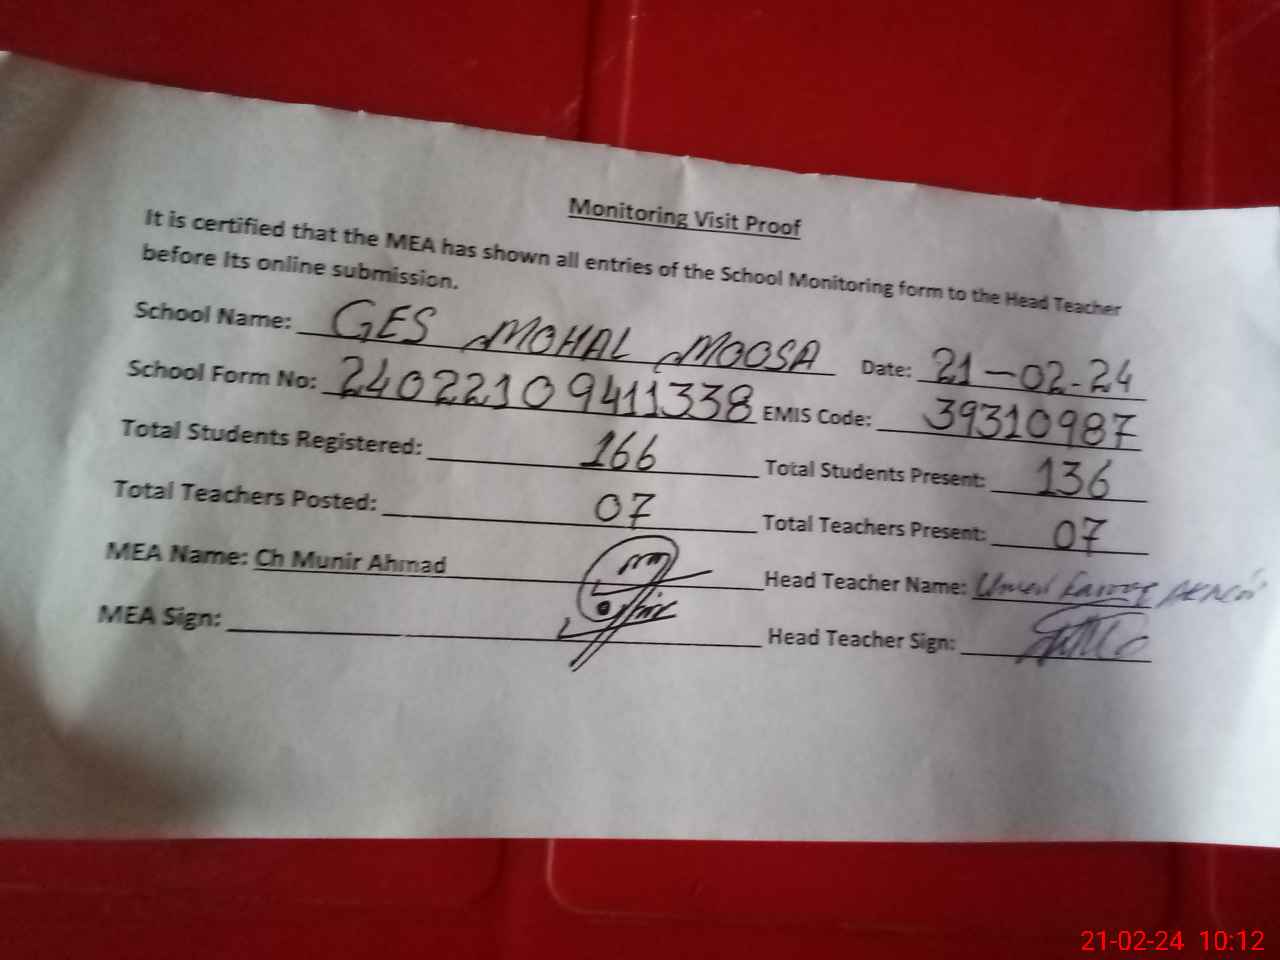 Monitoring Visit Proof
It is certified that the MEA has shown all entries of the School Monitoring form to the Head Teacher
before Its online submission.
School Name: GES MOHAL MOOSA Date: 21-02-24
School Form No: 24022109411338 EMIS Code: 39310987
Total Students Registered: 166 Total Students Present: 136
Total Teachers Posted: 07 Total Teachers Present: 07
MEA Name: Ch Munir Ahmad Head Teacher Name: Umer Farooq
MEA Sign: Head Teacher Sign:
21-02-24 10:12